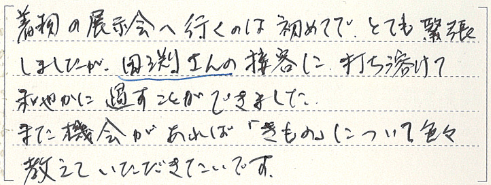 着物の展示会へ行くのは初めてで、とても緊張
しましたが、田渕さんの接客に打ち溶けて
和やかに過すことができました。
また機会があれば「きもの」について色々
教えていただきたいです。